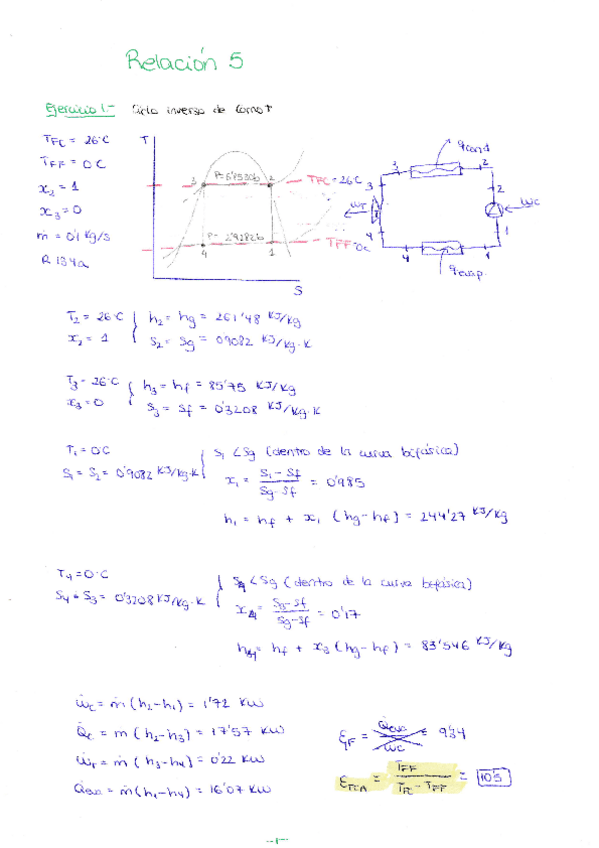 Relación 5
Ejercicio 1.- Ciclo inverso de Carnot
TFC = 26ºC
TFF = 0ºC
x2 = 1
x3 = 0
ṁ = 0'1 kg/s
R 134a
T
3
P=6'8530b
2
TFC = 26ºC
P= 2'9282b
4
1
TFF = 0ºC
S
qcond
3
2
3
2
wT
wC
4
1
4
1
qevap.
T2 = 26ºC
x2 = 1
h2 = hg = 261'48 KJ/kg
S2 = Sg = 0'9082 KJ/kg·K
T3 = 26ºC
x3 = 0
h3 = hf = 85'75 KJ/kg
S3 = Sf = 0'3208 KJ/kg·K
T1 = 0ºC
S1 = S2 = 0'9082 KJ/kg·K
S1 < Sg (dentro de la curva bifásica)
x1 = S1 - Sf / Sg - Sf = 0'985
h1 = hf + x1 (hg - hf) = 244'27 KJ/kg
T4 = 0ºC
S4 = S3 = 0'3208 KJ/kg·K
S4 < Sg (dentro de la curva bifásica)
x4 = S3 - Sf / Sg - Sf = 0'17
h4 = hf + x3 (hg - hf) = 83'546 KJ/kg
ẇc = ṁ (h2 - h1) = 1'72 KW
Q̇c = ṁ (h2 - h3) = 17'57 KW
ẇT = ṁ (h3 - h4) = 0'22 KW
Q̇evap = ṁ (h1 - h4) = 16'07 KW
εF = Q̇evap / ẇc = 9'34
εFCA = TFF / TFC - TFF = 10'5
--1--